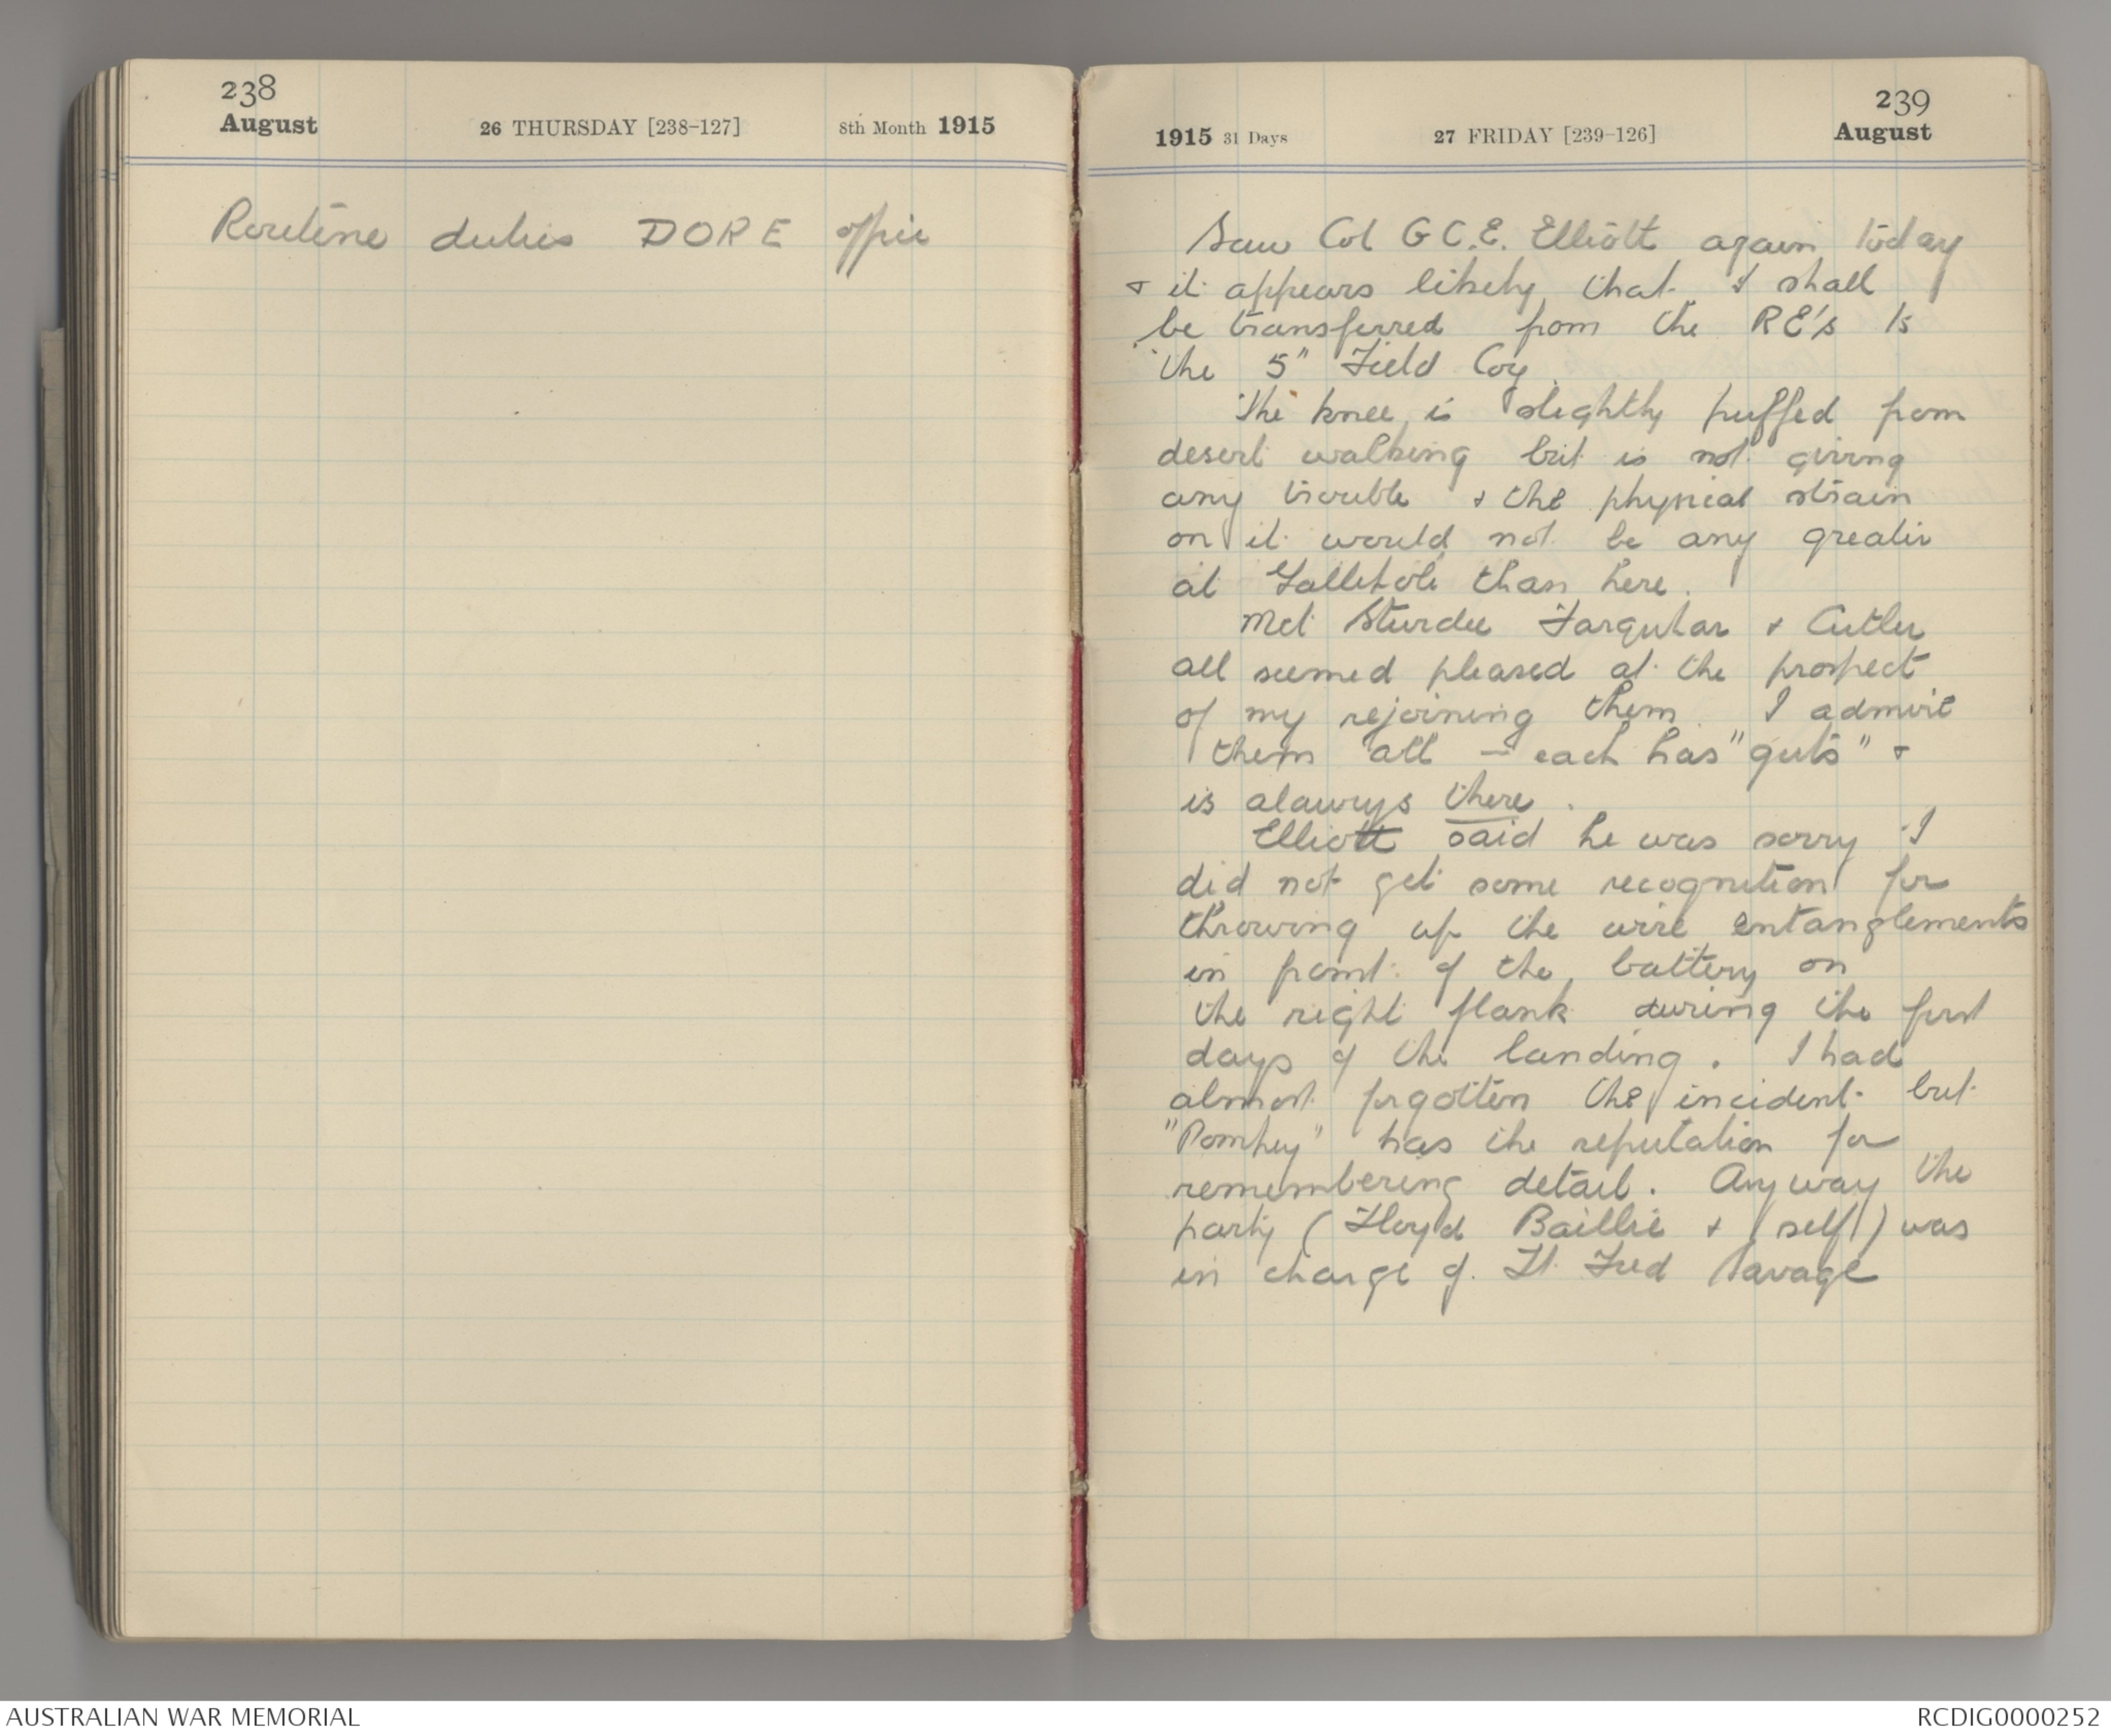 238
August
26 THURSDAY [238-127]
8th Month 1915
Routine duties DORE office
239
1915 31 Days
27 FRIDAY [239-126]
August
Saw Col G C.E. Elliott again today
& it appears likely that I shall
be transferred from the RE's to
the 5" Field Coy.
The knee is slightly puffed from
desert walking but is not giving
any trouble & the physical strain
on it would not be any greater
at Gallipoli than here.
Met Sturdee Farquhar & Cutler
all seemed pleased at the prospect
of my rejoining them. I admire
them all - each has "guts" &
is alawys there.
Elliott said he was sorry I
did not get some recognition for
throwing up the wire entanglements
in front of the battery on
the right flank during the first
days of the landing. I had
almost forgotten the incident but
"Pomhey" has the reputation for
remembering detail. Anyway the
party (Floyd Baillie & self) was
in charge of Lt. Fred Savage
AUSTRALIAN WAR MEMORIAL
RCDIG0000252